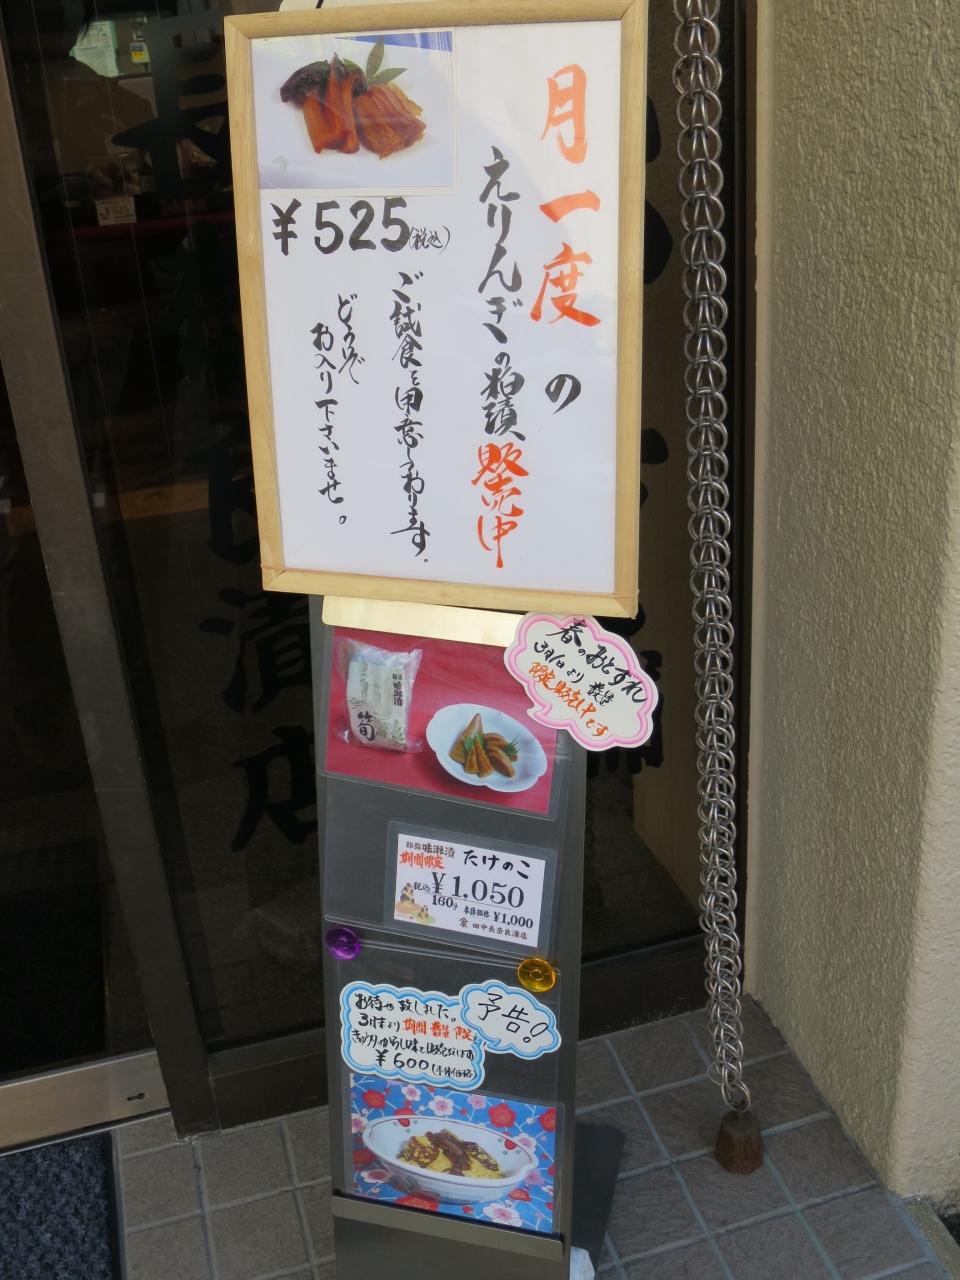 月一度の
えりんぎの粕漬販売中
¥525(税込)
ご試食を用意しております。
どうぞ
お入り下さいませ。
春のおとずれ
3月1日より 数量
限定販売中です
味淋漬
筍
都錦味淋漬
期間限定
たけのこ
税込¥1,050
160g 本体価格 ¥1,000
田中長奈良漬店
予告!
お待せ致しました。
3月末より期間数量限定で
きゅうりからし味を販売致します
¥600(本体価格)
漬
店